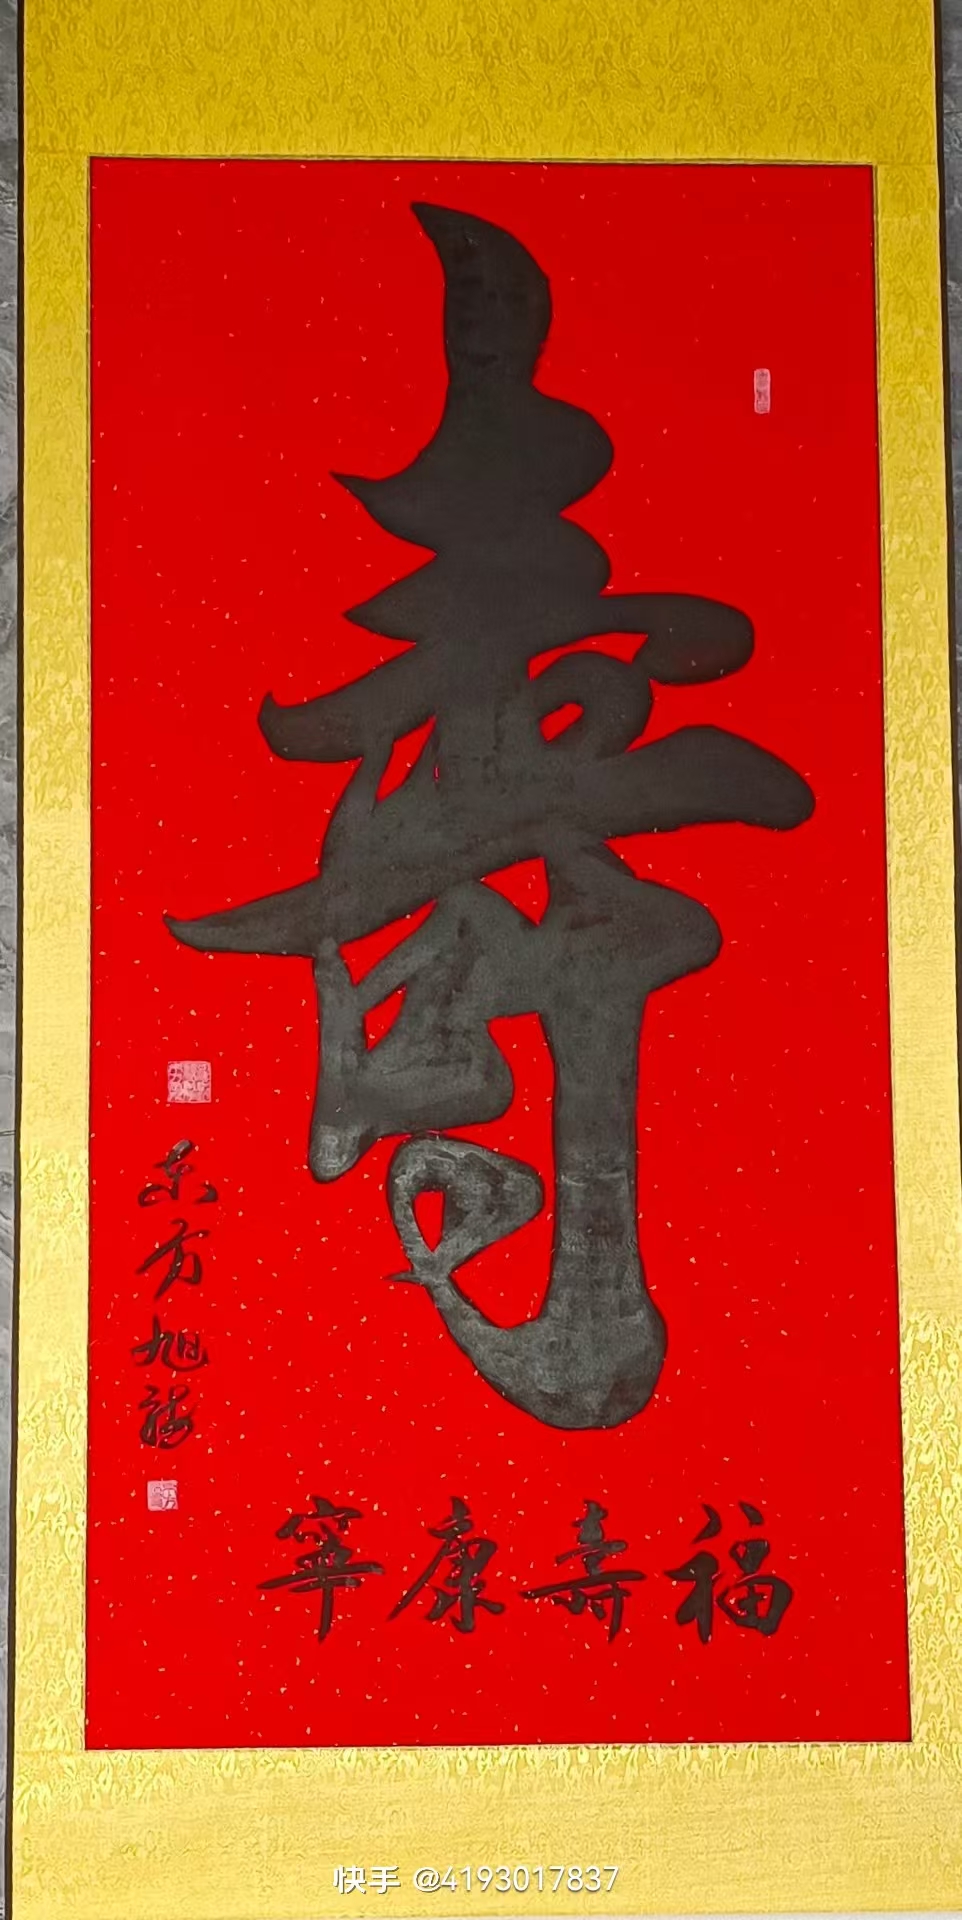 壽
福壽康寧
东方旭
快手 @4193017837